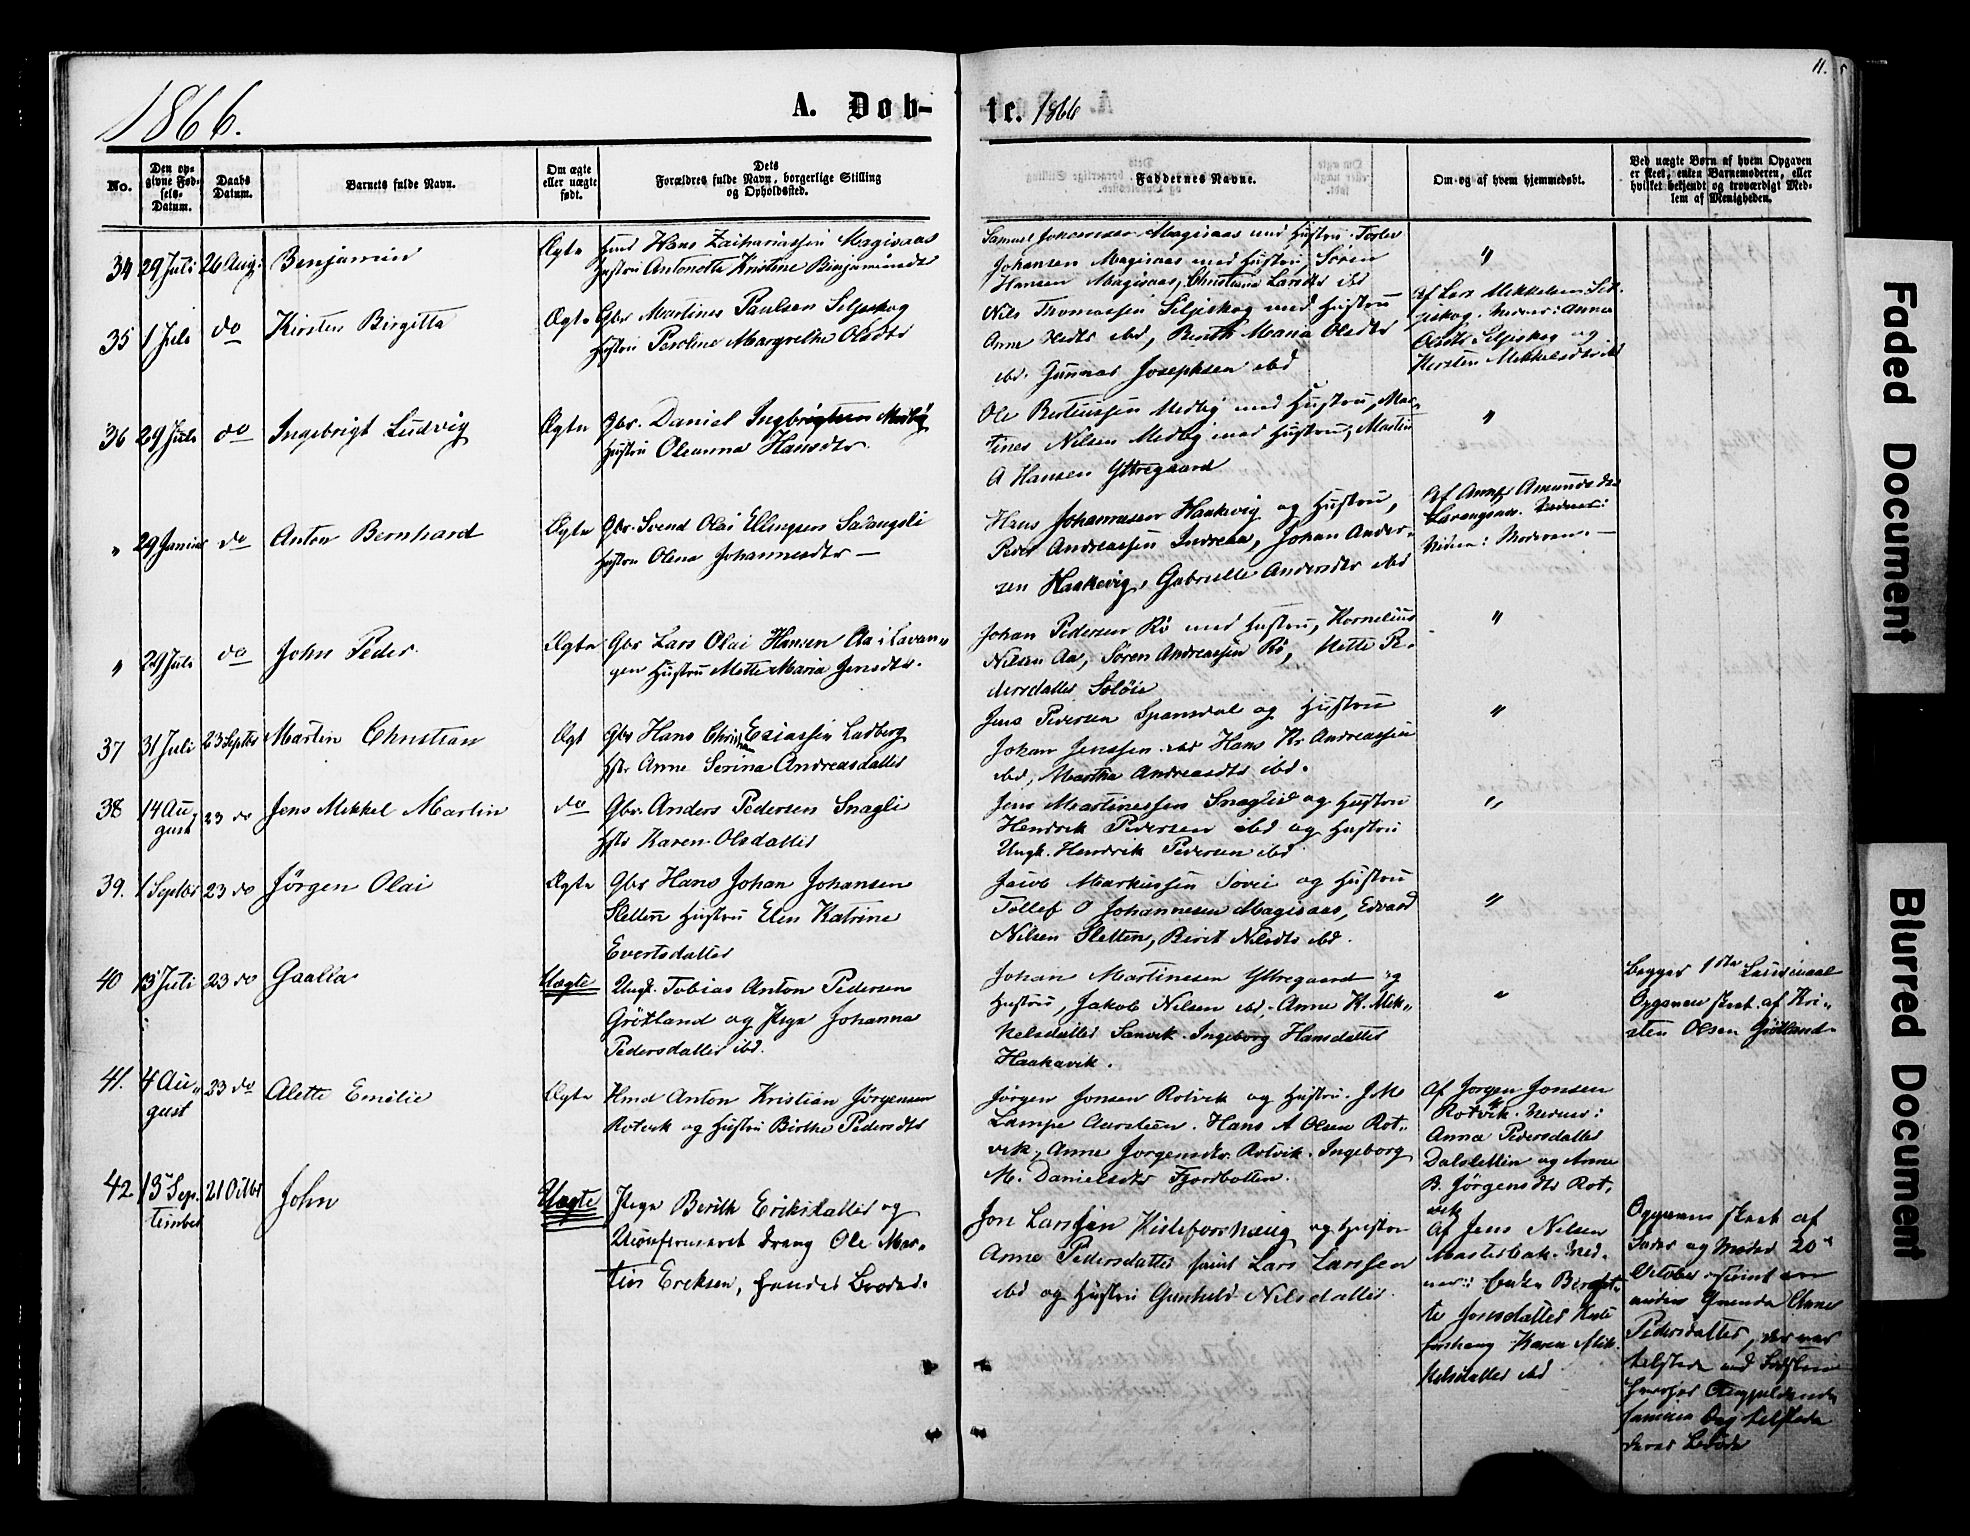 1866.
A. Døb-
te. 1866
11.
No.
Den op-
givne Fød-
sels-
Datum.
Daabs
Datum.
Barnets fulde Navn.
Om ægte
eller uægte
født.
Dets
Forældres fulde Navn, borgerlige Stilling
og Opholdssted.
Faddernes Navne.
Om og af hvem hjemmedøbt.
Ved uægte Børn af hvem Opgaven
er skeet, enten Barnemoderen, eller
hvilket bekjendt og troværdigt Med-
lem af Menigheden.
34 29 Juli 26 Aug: Benjamin Ægte Hmd Hans Zachariassen Magisaas
Hustru Antonette Kristine Benjaminsdtr
Samuel Johannesen Magisaas med Hustru
Johansen Magisaas med Hustru, Søren
Hansen Magisaas, Christiana Larsdtr ibd
"
35 1 Juli do Kirsten Birgitta Ægte Gbr Martines Paulsen Seljeskog
Hustru Peroline Margrethe Olsdtr
Nils Thomassen Seljeskog med Hustru
Anne ibd, Berith Maria Olsdtr
ibd. Gunnar Josephsen ibd
Af Lars Mikkelsen Sel-
jeskog. Anna
Olsdtr Seljeskog og
Kirsten Mikkelsdtr ibd
36 29 Juli do Ingebrigt Ludvig Ægte Gbr. Daniel Ingebrigtsen Medby
Hustru Oleanna Hansdtr
Ole Bertiussen Medby med Hustru, Mar-
tines Nilsen Medby med Hustru, Martin
A Hansen Yttregaard
"
" 29 Januar do Anton Bernhard Ægte Gbr. Svend Olai Ellingsen Salangsli
Hustru Olena Johannesdtr —
Hans Johannesen Haakevig og Hustru,
Peder Andreassen Indreaa, Johan Ander-
sen Haakevig, Gabrielle Andersdtr ibd
Af Anne Amundsdtr
Moderen. —
" 29 Juli do John Peder. Ægte Gbr Lars Olai Hansen Aa i Lavan-
gen Hustru Mette Maria Jensdtr.
Johan Pedersen Rø med Hustru, Kornelius
Nilsen Aa, Søren Andreassen Rø, Mette Pe-
dersdatter Soløie
"
37 31 Juli 23 Septbr Martin Christian Ægt Gbr Hans Christian Esiassen Ladberg
Hstr Anne Serina Andreasdatter
Jens Pedersen Spansdal og Hustru
Johan Jenssen ibd Hans Kr Andreassen
ibd, Martha Andreasdtr ibd.
"
38 14 Au-
gust 23 do Jens Mikkel Martin do Gbr. Anders Pedersen Snagli
Hstr Karen Olsdatter
Jens Martinessen Snaglid og Hustru
Hendrik Pedersen ibd og Hustru
Ungk. Hendrik Pedersen ibd
"
39. 1 Septbr 23 do Jørgen Olai Ægte Gbr Hans Johan Johansen
Sletten Hustru Elen Katrine
Evertsdatter
Jacob Markussen Sovei og Hustru
Tollef O Johannesen Magisaas, Edvard
Nilsen Sletten, Berit Nilsdtr ibd.
"
40 13 Juli 23 do Gaalla Uægte Ungk. Tobias Anton Pedersen
Grøtland og Pige Johanna
Pedersdatter ibd.
Johan Martinesen Yttregaard og
Hustru, Jakob Nilsen ibd, Anne K. Mik-
kelsdatter Sanvik. Ingeborg Hansdatter
Haakavik.
"
Begges 1ste Leiermaal
Opgaven skeet af Kri-
sten Olsen Grøtland
41. 4 Au-
gust 23 do Alette Emilie Ægte Hmd Anton Kristian Jørgensen
Rotvik og Hustru Birthe Pedersdtr
Jørgen Jonsen Rotvik og Hustru. J M
Lampe Aarsteen. Hans A Olsen Rot-
vik, Anne Jørgensdtr Rotvik. Ingeborg
M. Danielsdtr Fjordbotten.
Af Jørgen Jonsen
Rotvik.
Anna Pedersdatter
Dalsletten og Anne
B. Jørgensdtr Rot-
vik
42 13 Sep-
tember 21 Octbr John Uægte Pige Berith Eriksdatter og
Ukonfirmeret Dreng Ole Mar-
tin Eriksen, hendes Broder.
Jon Larssen Kilefoshaug og Hustru
Anne Pedersdatter samt Lars Larssen
ibd og Hustru Gunhild Nilsdatter.
Af Jens Nilsen
Mosterbak.
Jonsdatter
Karen Mik-
kelsdatter ibd
Opgaven skeet af
Fader og Moder 20de
October
anden Anne
Pedersdatter, der var
tilstede ved Fødselen
deres Brøde
Faded Document
Blurred Document